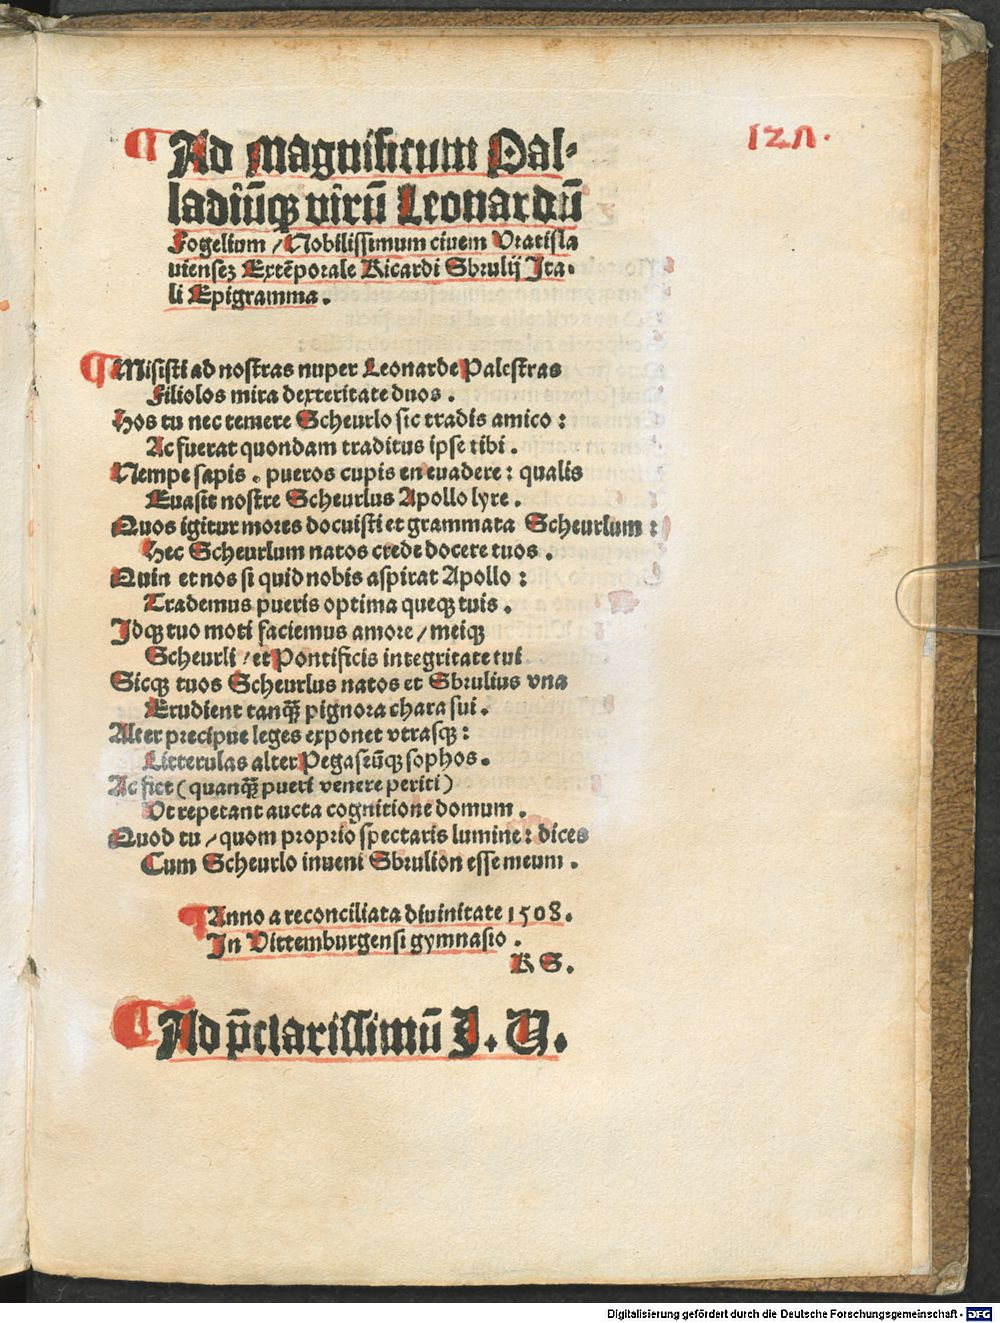 127.
¶ Ad Magnificum Pal-
ladiūqꝫ virū Leonardū
Fogelium / Nobilissimum ciuem Vratisla
uienseꝫ Extēporale Ricardi Sbrulij Ita-
li Epigramma.
¶ Misisti ad nostras nuper Leonarde Palestras
Filiolos mira dexteritate duos.
Hos tu nec temere Scheurlo sic tradis amico:
Ac fuerat quondam traditus ipse tibi.
Nempe sapis. pueros cupis en euadere: qualis
Euasit nostre Scheurlus Apollo lyre.
Quos igitur mores docuisti et grammata Scheurlum:
Hec Scheurlum natos crede docere tuos.
Quin et nos si quid nobis aspirat Apollo:
Trademus pueris optima queqꝫ tuis.
Idqꝫ tuo moti faciemus amore / meiqꝫ
Scheurli / et Pontificis integritate tui
Sicqꝫ tuos Scheurlus natos et Sbrulius vna
Erudient tanqꝫ̄ pignora chara sui.
Alter precipue leges exponet vtrasqꝫ:
Litterulas alter Pegaseūqꝫ sophos.
Ac fiet (quanqꝫ̄ pueri venere periti)
Vt repetant aucta cognitione domum.
Quod tu / quom proprio spectaris lumine: dices
Cum Scheurlo inueni Sbrulion esse meum.
¶ Anno a reconciliata diuinitate 1508.
In Vittemburgensi gymnasio.
R S.
¶ Ad p̄clarissimū J. U.
Digitalisierung gefördert durch die Deutsche Forschungsgemeinschaft - DFG